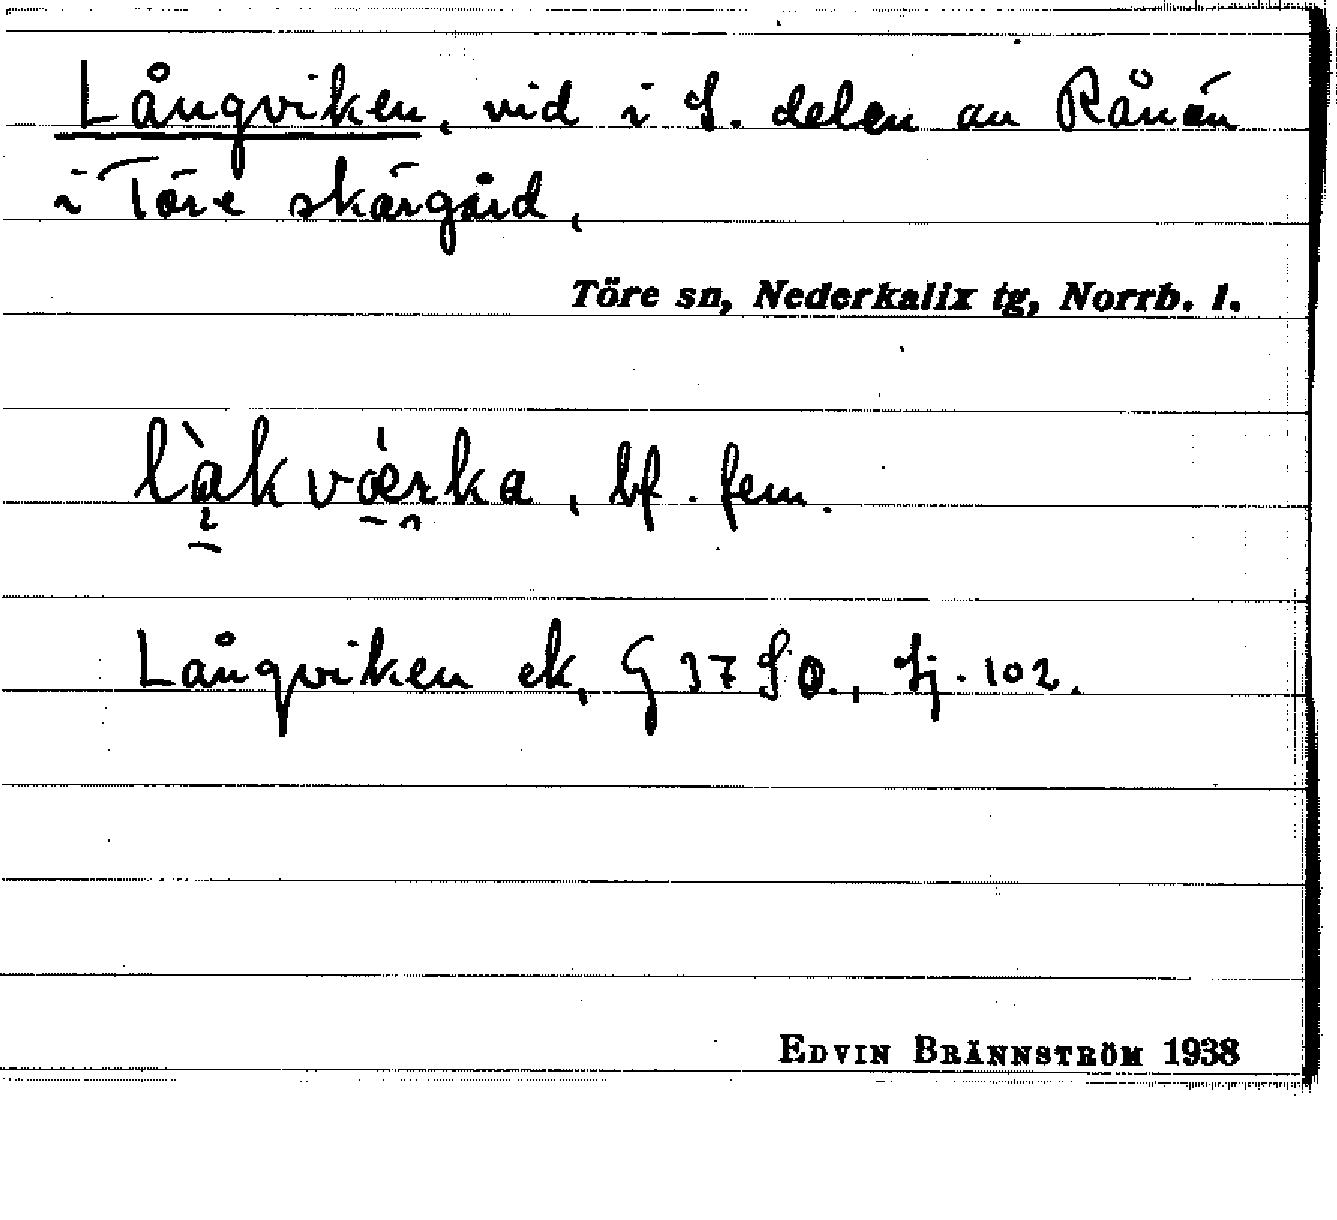 Långviken, vid i S. delen av Rånön
i Töre skärgård,
Töre sn, Nederkalix tg, Norrb. l.
làkvǽrka, bf. fem.
Långviken ek, G 37 SO., Sj. 102.
EDVIN BRÄNNSTRÖM 1938